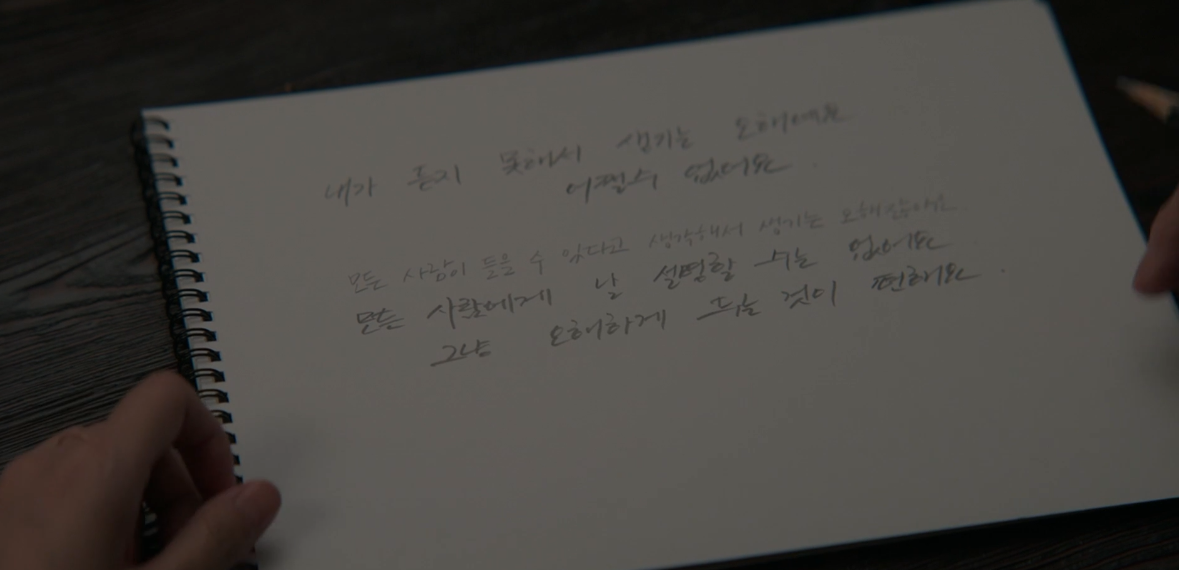 내가 듣지 못해서 생기는 오해예요
어쩔수 없어요.
모든 사람이 들을 수 있다고 생각해서 생기는 오해잖아요
모든 사람에게 날 설명할 수는 없어요
그냥 오해하게 두는 것이 편해요.